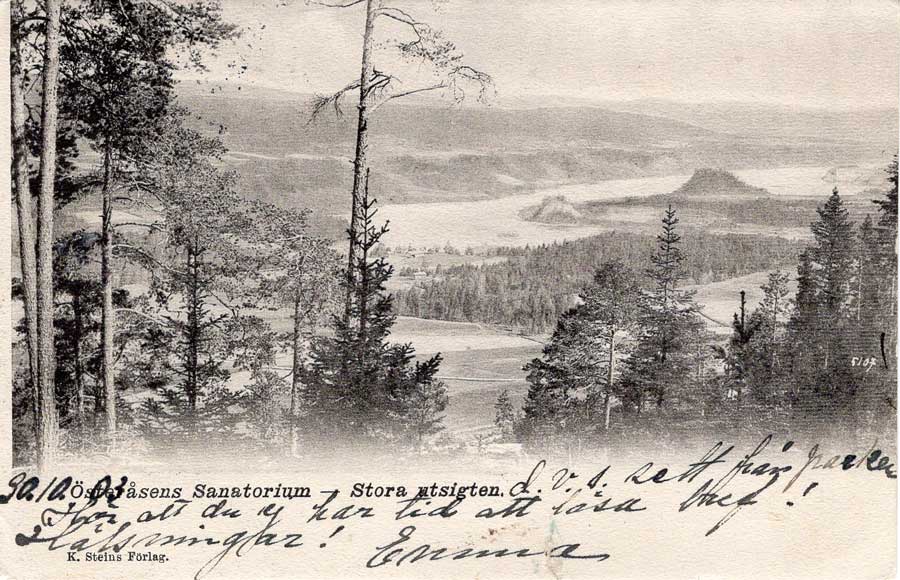 5107
Österåsens Sanatorium – Stora utsigten. d. v. s. sett från parken
30.10.
att du ej har tid att läsa bref!
Hälsningar!
Emma
K. Steins Förlag.